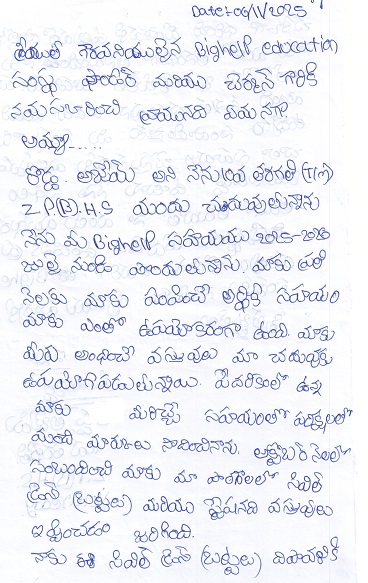 Date:- 06/11/2025
గౌరవనీయులైన Bighelp education
సంస్థ ఫౌండర్ మరియు చైర్మన్ గారికి
నమస్కరించి వ్రాయునది ఏమనగా.
అయ్యా.....
అని నేను తరగతి
Z.P.(B).H.S యందు చదువుతున్నాను
నేను మీ Bighelp సహాయము 2025-2026
జులై నుండి పొందుతున్నాను. మాకు ప్రతి
నెలకు మాకు పంపించే ఆర్థిక సహాయం
మాకు ఎంతో ఉపయోకరంగా ఉంది. మాకు
మీరు అందించే వస్తువులు మా చదువుకు
ఉపయోగపడుతున్నాయి. పేదరికంలో ఉన్న
మాకు మీరిచ్చే సహాయంతో పరీక్షలలో
మంచి మార్కులు సాధించినాను. అక్టోబర్ నెలలో
సంబంధించి మాకు మా పాఠశాలలో సివిల్
డ్రెస్ (బట్టలు) మరియు వస్తువులు
ఇవ్వడం జరిగింది.
నాకు ఈ సివిల్ డ్రెస్ (బట్టలు)